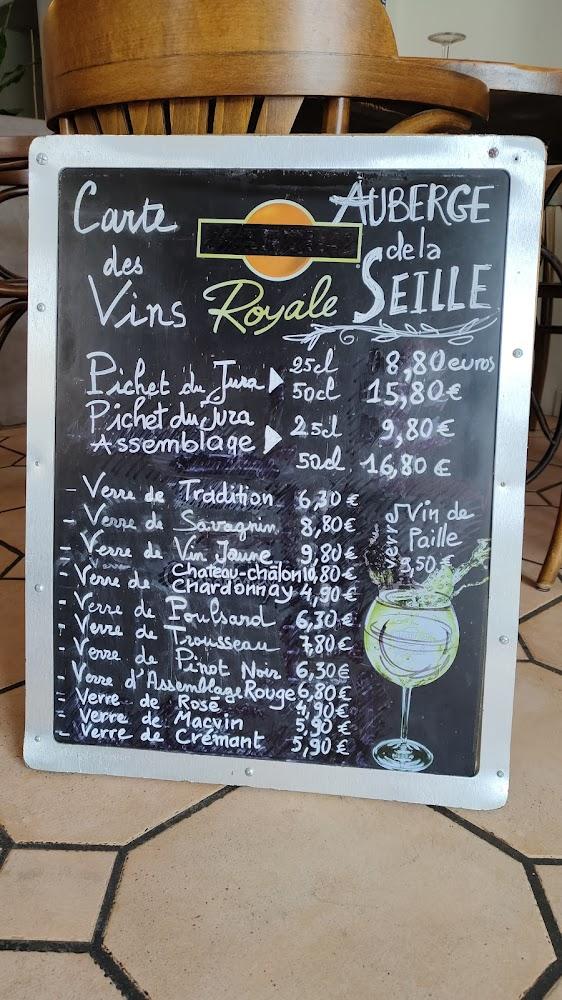 Carte
des
Vins
Royale
AUBERGE
de la
SEILLE
Pichet du Jura 25cl 8,80 euros
50cl 15,80€
Pichet du Jura
Assemblage 25cl 9,80€
50cl 16,80€
- Verre de Tradition 6,30€
- Verre de Savagnin 8,80€
- Verre de Vin Jaune 9,80€
- Verre de Chateau-châlon 10,80€
Chardonnay 4,90€
- Verre de Poulsard 6,30€
- Verre de Trousseau 7,80€
- Verre de Pinot Noir 6,30€
- Verre d'Assemblage Rouge 6,80€
- Verre de Rosé 4,90€
- Verre de Macvin 5,90€
- Verre de Crémant 5,90€
verre Vin de
Paille
9,50€